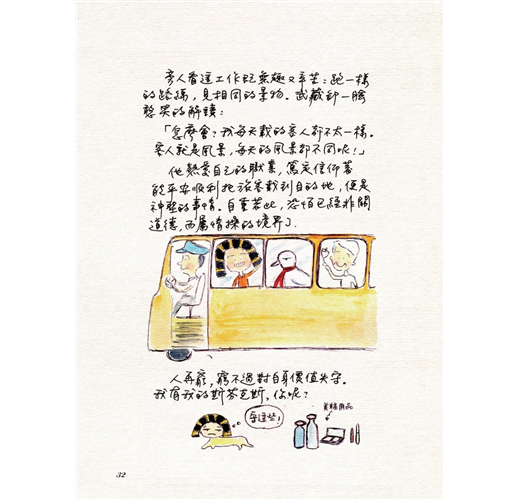 旁人看這工作既無趣又辛苦：跑一樣
的路線，見相同的景物。武藏卻一臉
憨笑的解讀：
「怎麼會？我每天載的客人都不太一樣。
客人就是風景，每天的風景都不同呢！」
他熱愛自己的職業，篤定信仰著
能平安順利把旅客載到目的地，便是
神聖的事情。自重若此，恐怕已經非關
道德，而屬情操的境界了。
人再窮，窮不過對自身價值失守。
我有我的斯芬克斯，你呢？
美容用品
32